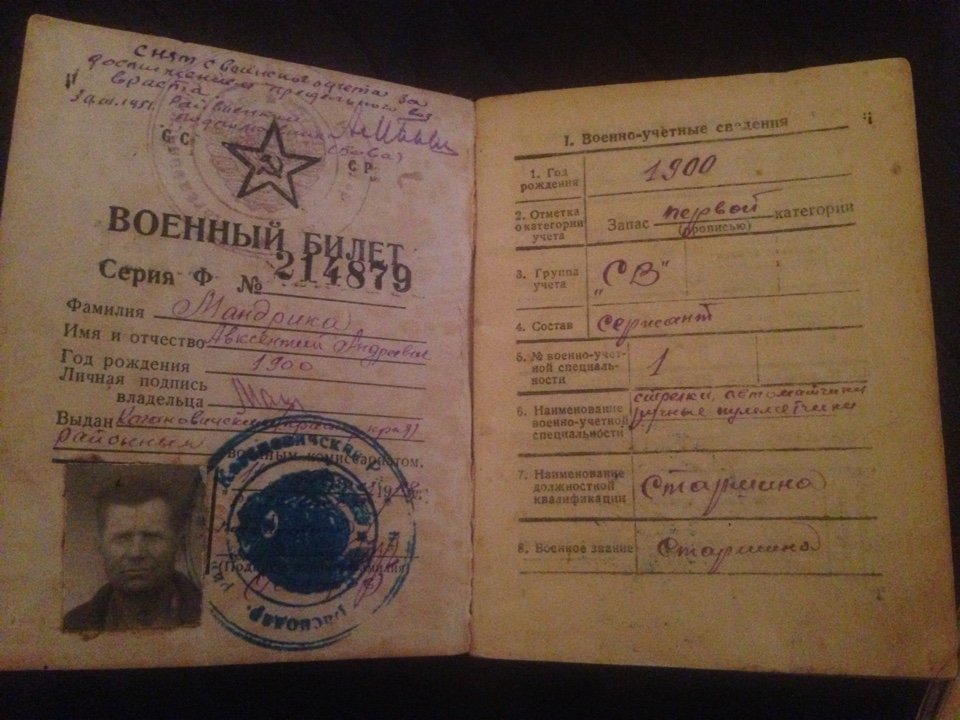 Снят с воинского учета за
достижением предельного воз
враста
Райвоенком
СС
СР
ВОЕННЫЙ БИЛЕТ
Серия Ф № 214879
Фамилия Мандрика
Имя и отчество Авксентий Андреевич
Год рождения 1900
Личная подпись
владельца Ман
Выдан Кагановичским красн. края
Районным
военным комиссариатом.
I. Военно-учётные сведения
1. Год
рождения
1900
2. Отметка
о категории
учета
Запас первой категории
(прописью)
3. Группа
учета
„СВ"
4. Состав
сержант
5. № военно-учет-
ной специаль-
ности
1
6. Наименование
военно-учетной
специальности
стрелки, автоматчики
ручные пулиметчики
7. Наименование
должностной
квалификации
Старшина
8. Военное звание
Старшина